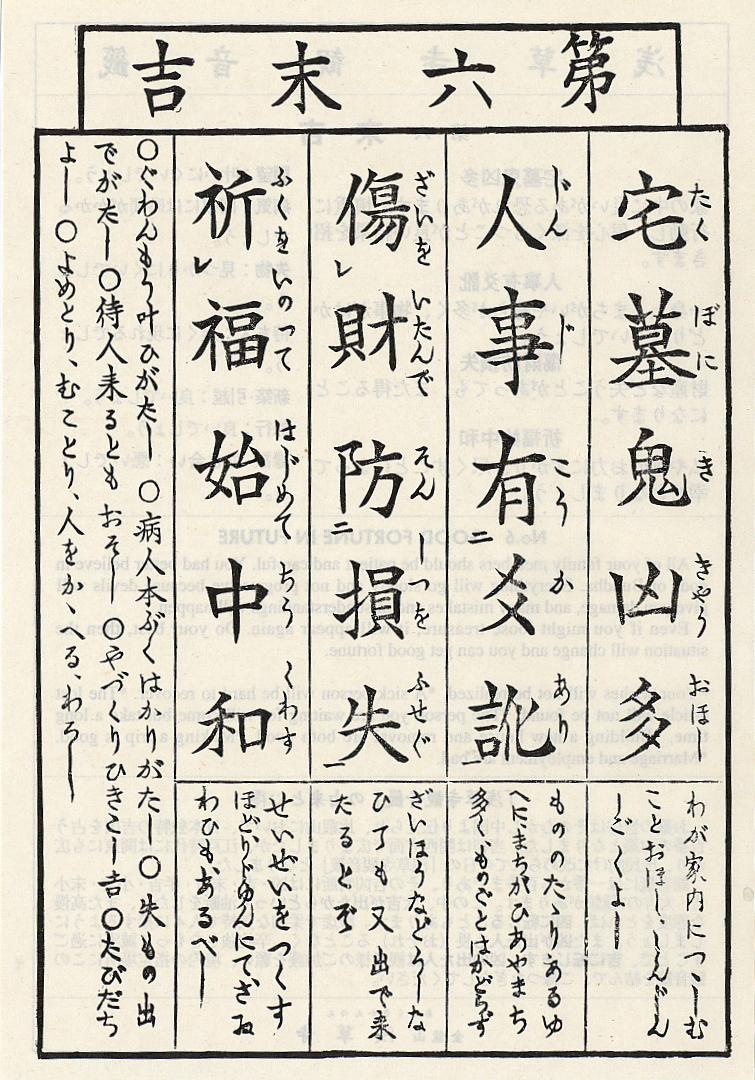 第六末吉
たく ぼに き きやう おほし
宅墓鬼凶多
わが家内につゝしむ
ことおほししんじん
しごくよし
じん じ こう か あり
人事有二爻訛一
もののたたりあるゆ
へにまちがひあやまち
多くものごとはかどらず
ざいを いたんで そんしつを ふせぐ
傷レ財防二損失一
ざいほうなどうしな
ひても又出で来
たるとぞ
ふをいのつて はじめて ちう くわす
祈レ福始中和
せいぜいをつくす
ほどりじゆんにてさゐ
わひも、あるべし
○ぐわんもう叶ひがたし ○病人本ぶくはかりがたし ○失もの出
でがたし ○待人来るともおそし ○やづくりひきこし吉 ○たびだち
よし ○よめとり、むことり、人をかゝへる、わろし